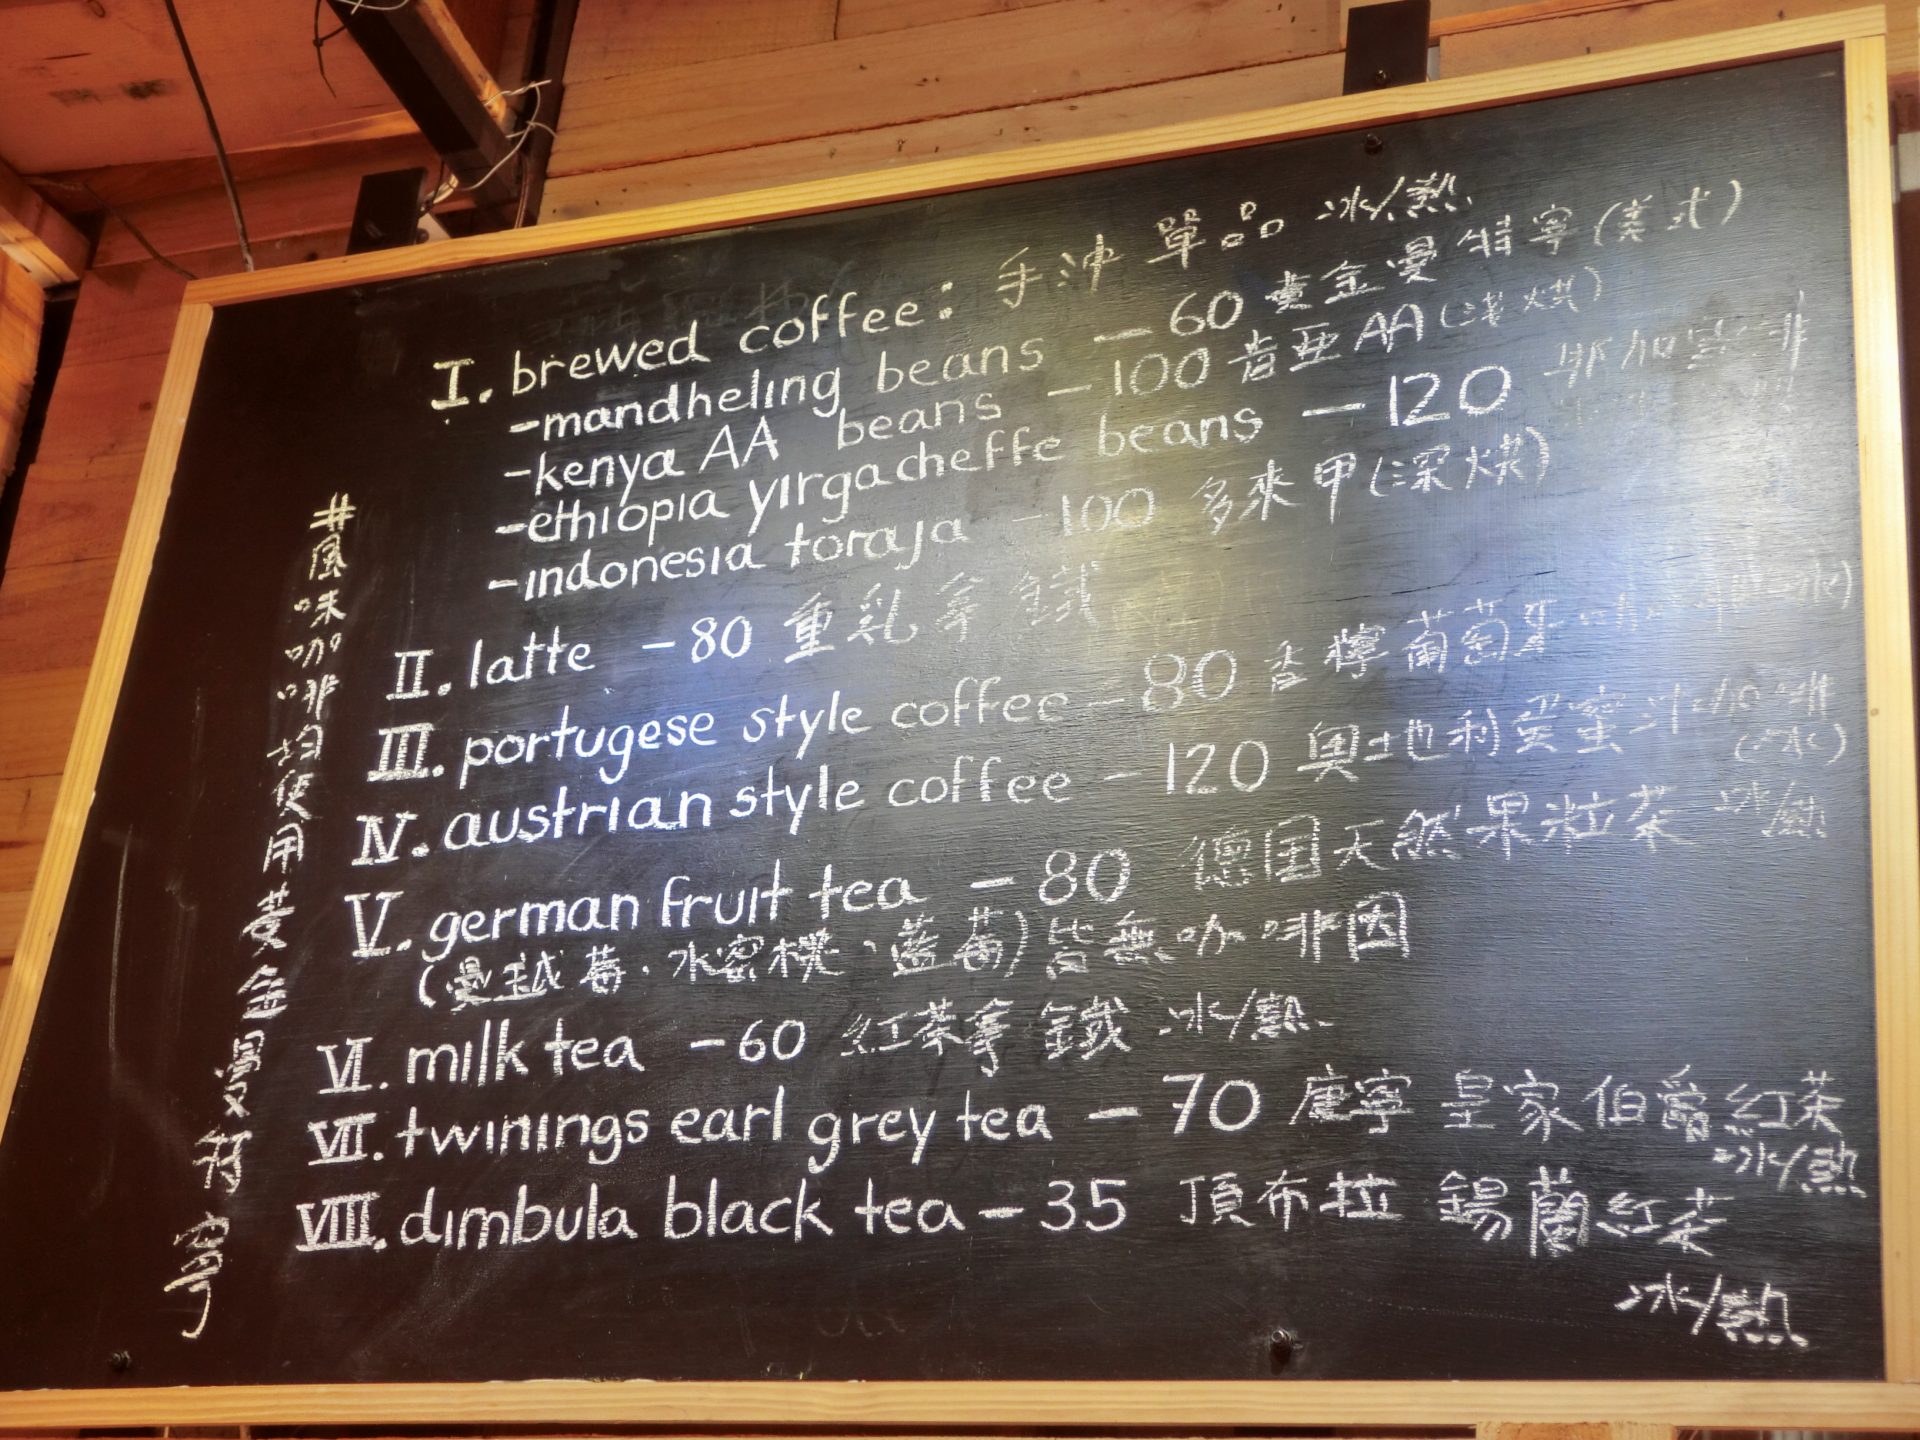 I. brewed coffee: 手沖單品 冰/熱
-mandheling beans -60 黃金曼特寧(美式)
-kenya AA beans -100 肯亞AA(淺烘)
-ethiopia yirgacheffe beans -120 耶加雪啡
-indonesia toraja -100 多來甲(深烘)
II. latte -80 重乳拿鐵
III. portugese style coffee -80 香檸葡萄牙咖啡(冰)
IV. austrian style coffee -120 奧地利蛋蜜汁咖啡
(冰)
V. german fruit tea -80 德国天然果粒茶 冰/熱
(曼越莓、水蜜桃、藍莓)皆無咖啡因
VI. milk tea -60 紅茶拿鐵 冰/熱
VII. twinings earl grey tea -70 唐寧 皇家伯爵紅茶
冰/熱
VIII. dimbula black tea -35 頂布拉 錫蘭紅茶
冰/熱
#風味咖啡均使用黃金曼特寧